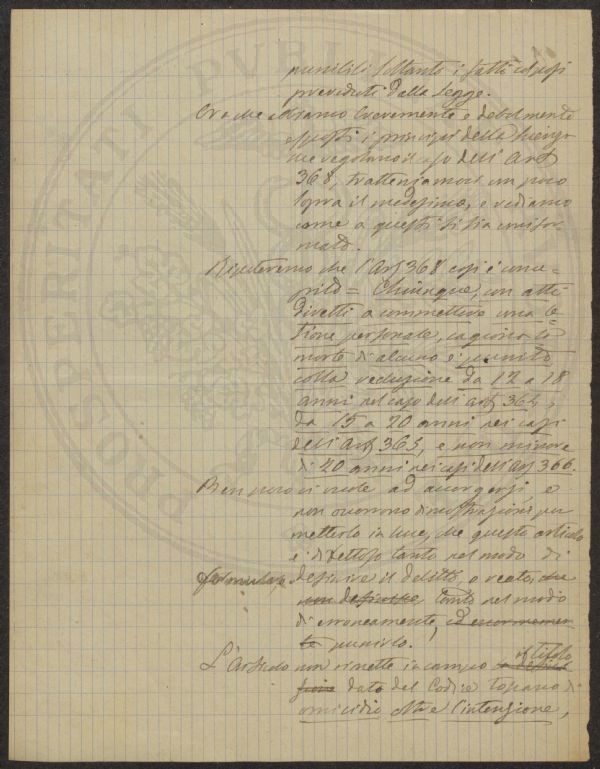 punibili soltanto i fatti colposi
preveduti dalla legge.
Ora che abbiamo brevemente e debolmente
esposti i principii della scienza
che regolano il caso dell'Art
368, tratteniamoci un poco
sopra il medesimo, e vediamo
come a questi si sia unifor-
mato.
Ripeteremo che l'Art 368 così è conce-
pito = Chiunque, con atti
diretti a commettere una le-
sione personale, cagiona la
morte di alcuno è punito
colla reclusione da 12 a 18
anni nel caso dell'art 364,
da 15 a 20 anni nei casi
dell'Art 365, e non minore
di 20 anni nei casi dell'Art 366.
Ben poco ci vuole ad accorgersi, e
non occorrono dimostrazioni per
metterlo in luce, che questo articolo
è difettoso tanto nel modo di
definire il delitto, o reato, che
tanto nel modo
di erroneamente, ed enormemen-
te punirlo.
L'Articolo non rimette in campo il titolo
dato dal Codice Toscano di
omicidio oltre l'intenzione,
PVBLI
PROSPERITATI